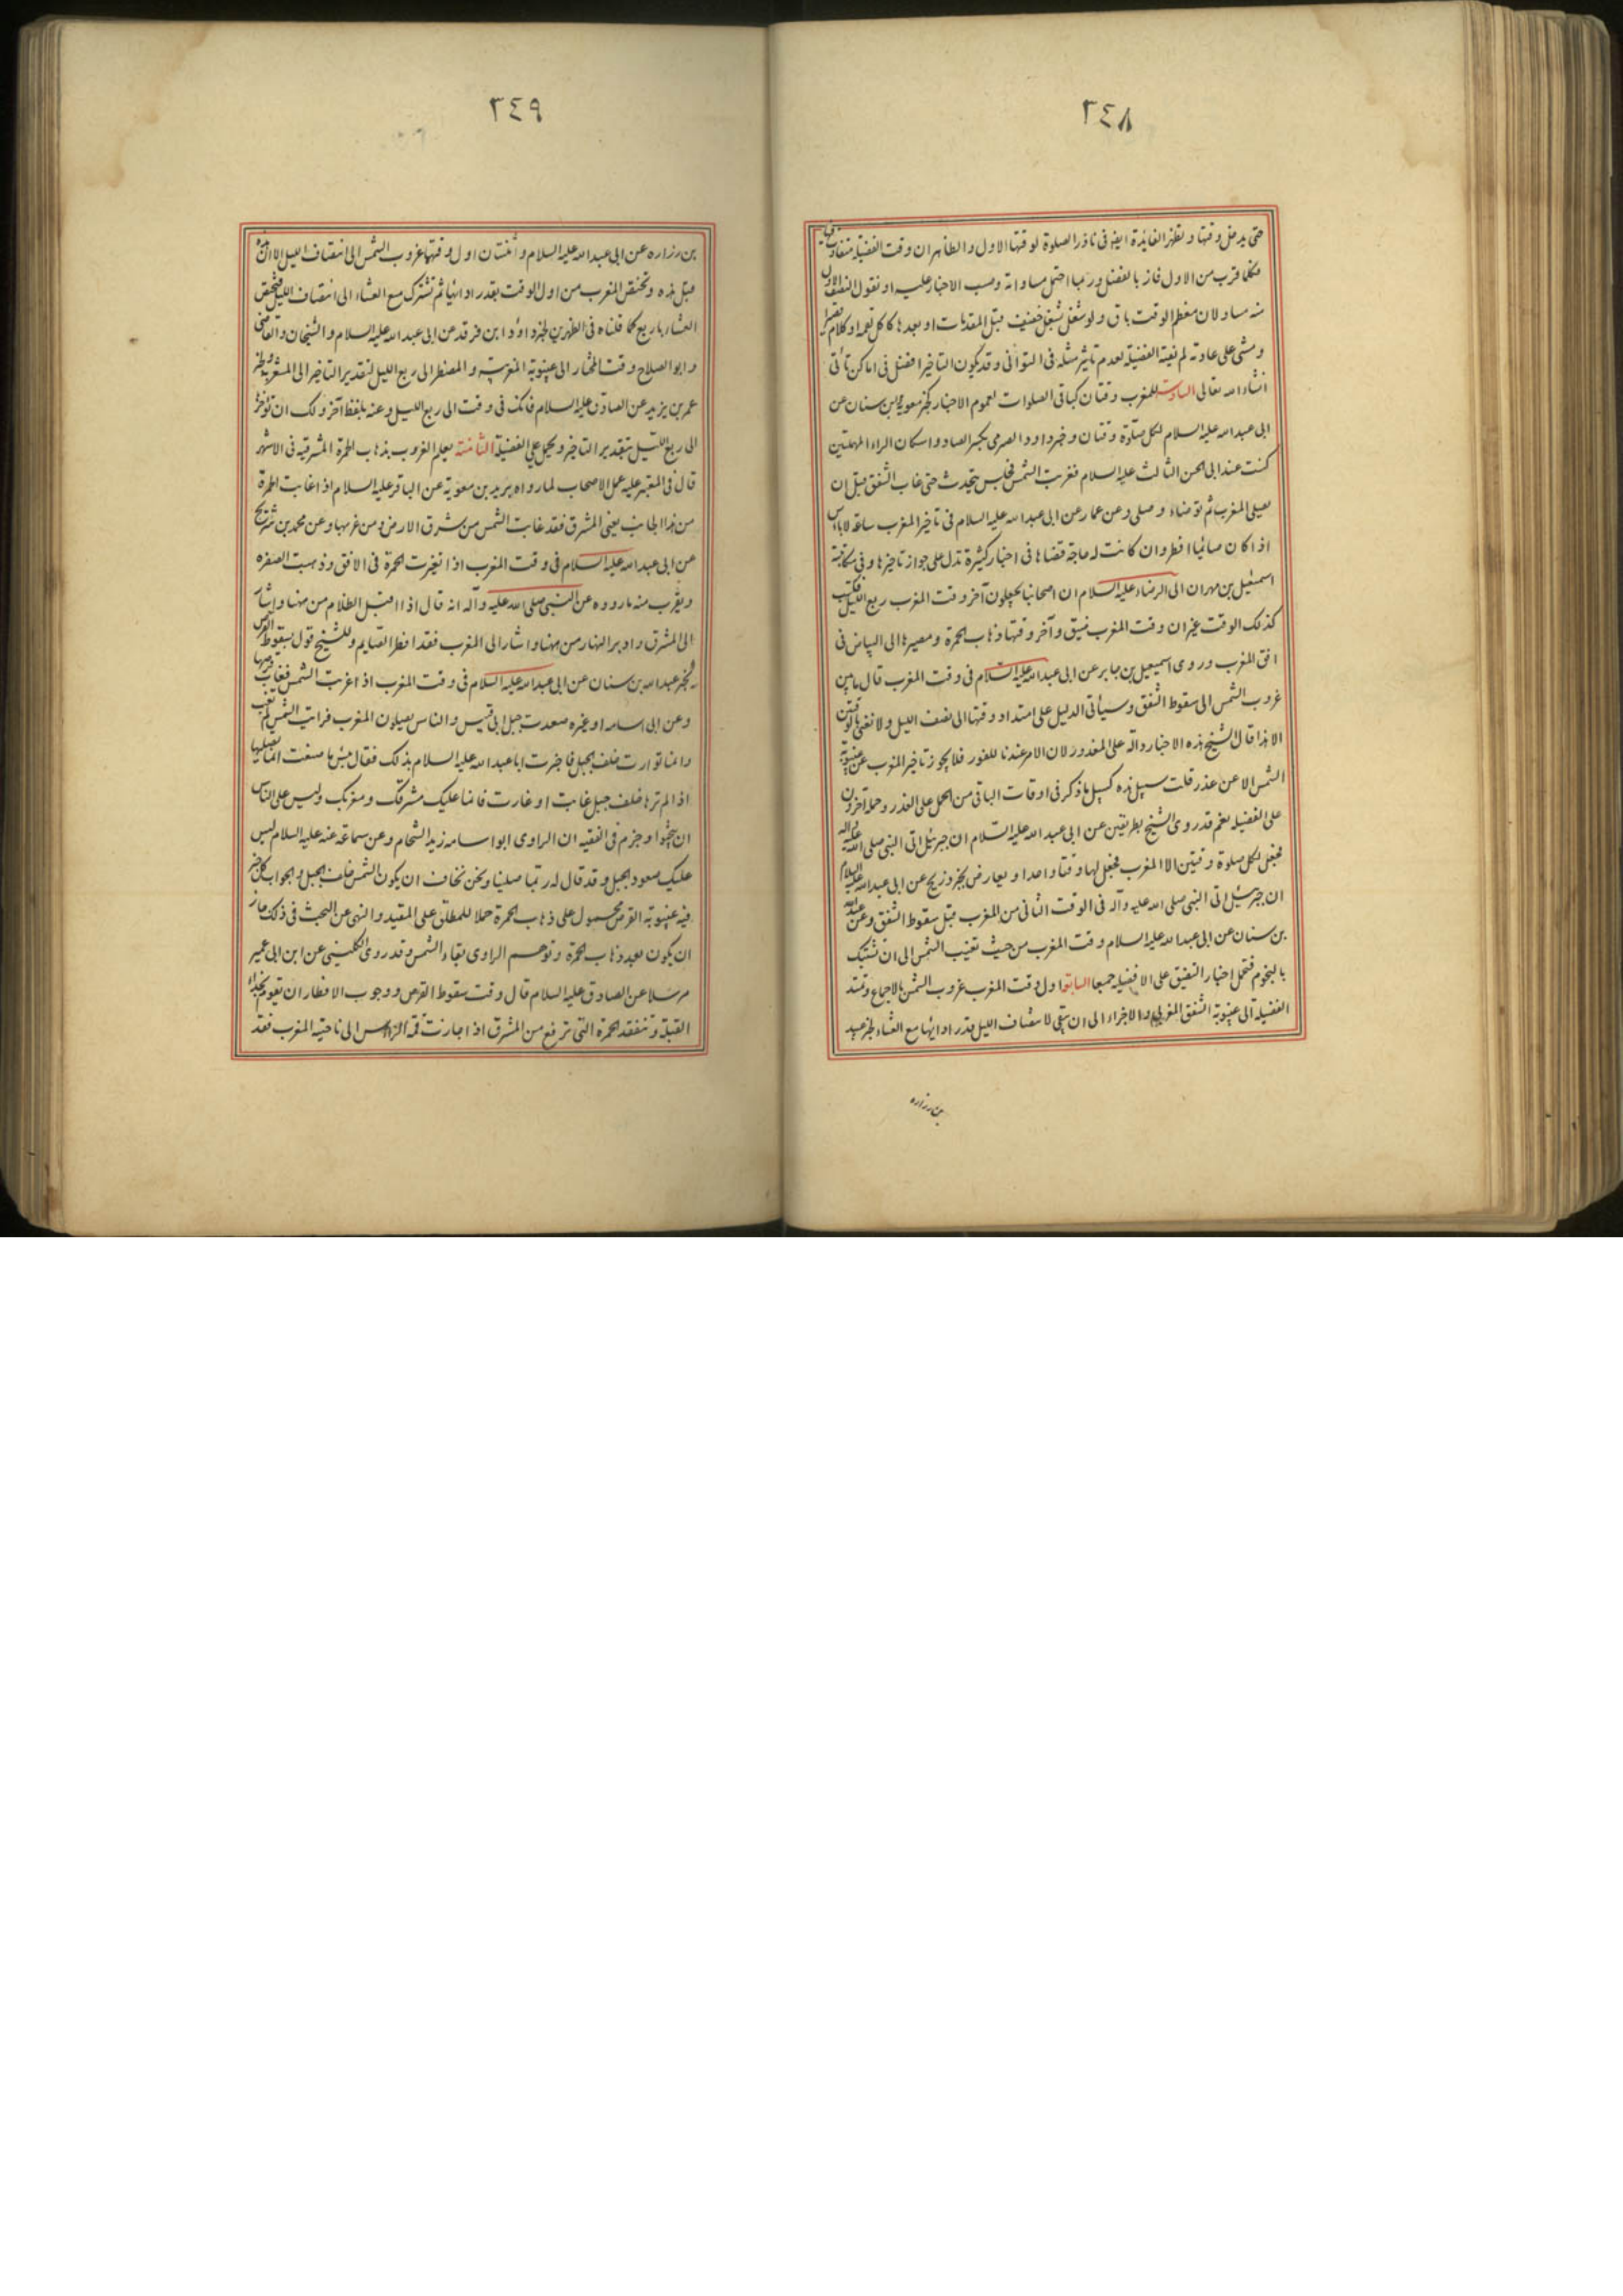 ٢٤٨
حتى يدخل وقتها و تظهر الفايدة ايض فى ناذر الصلوة لوقتها الاول و الظاهر ان وقت الفضيلة متفاوت
فكلما قرب من الاول فاز بالفضل و ربما احتمل مساواته وحسب الاخبار عليه او نقول النصف الاول
منه مساو لان معظم الوقت باق و لو شغل شغل خفيف قبل المقدمات او بعدها كاكل لقمة او كلام قصير
و مشى على عادته لم يفته الفضيلة لعدم تاثير مثله فى التوانى و قد يكون التاخير افضل فى اماكن تاتى
انشاء الله تعالى السادسة للمغرب وقتان كباقى الصلوات لعموم الاخبار كخبر معوية بن سنان عن
ابى عبد الله عليه السلام لكل صلوة وقتان و خبر داود الصرمى بكسر الصاد و اسكان الراء المهملتين
كنت عند ابى الحسن الثالث عليه السلام فغربت الشمس فجلس يتحدث حتى غاب الشفق قبل ان
يصلى المغرب ثم توضاء و صلى و عن عمار عن ابى عبد الله عليه السلام فى تاخير المغرب ساعة لاباس
اذا كان صائما افطر و ان كانت له حاجة قضاها فى اخبار كثيرة تدل على جواز تاخيرها و فى مكاتبة
اسمعيل بن مهران الى الرضاء عليه السلام ان اصحابنا يجعلون آخر وقت المغرب ربع الليل فكتب
كذلك الوقت غير ان وقت المغرب ضيق و آخر وقتها ذهاب الحمرة و مصيرها الى البياض فى
افق المغرب و روى اسمعيل بن جابر عن ابى عبد الله عليه السلام فى وقت المغرب قال ما بين
غروب الشمس الى سقوط الشفق و سيأتى الدليل على امتداد وقتها الى نصف الليل و لا نعنى بالوقتين
الا هذا قال الشيخ هذه الاخبار دالة على المعذور لان الامر عندنا للفور فلا يجوز تاخير المغرب عن غيبوبة
الشمس الا عن عذر قلت سبيل هذه كسبيل ما ذكر فى اوقات الباقى من الحمل على العذر و حملها آخرون
على الفضيلة نعم قد روى الشيخ بطريقين عن ابى عبد الله عليه السلام ان جبرئيل اتى النبى صلى الله عليه و اله
فجعل لكل صلوة وقتين الا المغرب فجعل لها وقتا واحدا و يعارض بخبر ذريح عن ابى عبد الله عليه السلام
ان جبرئيل اتى النبى صلى الله عليه و آله فى الوقت الثانى من المغرب قبل سقوط الشفق و عن عبد الله
بن سنان عن ابى عبد الله عليه السلام وقت المغرب من حيث تغيب الشمس الى ان تشتبك
بالنجوم فتحمل اخبار التضيق على الافضلية جمعا السابعة اول وقت المغرب غروب الشمس بالاجماع و تمتد
الفضيلة الى غيبوبة الشفق المغربى و الاجزاء الى ان يبقى لانتصاف الليل قدر ادائها مع العشاء لخبر عبيد
بن زراره
٢٤٩
بن زراره عن ابى عبد الله عليه السلام و اثنتان اول وقتهما غروب الشمس الى انتصاف الليل الا ان هذه
قبل هذه و تختص المغرب من اول الوقت بقدر ادائها ثم تشترك مع العشاء الى انتصاف الليل فيختص
العشاء باربع كما قلناه فى الظهرين لخبر داود ابن فرقد عن ابى عبد الله عليه السلام و الشيخان و القاضى
و ابو الصلاح وقت المختار الى غيبوبة المغربية و المضطر الى ربع الليل لتقدير التاخير الى المشعر و لخبر
عمر بن يزيد عن الصادق عليه السلام فانك فى وقت الى ربع الليل و عنه بلفظ آخر و لك ان تؤخر
الى ربع الليل بتقدير التاخير و يحمل على الفضيلة الثامنة يعلم الغروب بذهاب الحمرة المشرقية فى الاشهر
قال فى المعتبر عليه عمل الاصحاب لما رواه بريد بن معوية عن الباقر عليه السلام اذا غابت الحمرة
من هذا الجانب يعنى المشرق فقد غابت الشمس من شرق الارض و من غربها و عن محمد بن شريح
عن ابى عبد الله عليه السلام فى وقت المغرب اذا تغيرت الحمرة فى الافق و ذهبت الصفره
و يقرب منه ما رووه عن النبى صلى الله عليه و آله انه قال اذا اقبل الظلام من هنا و اشار
الى المشرق و ادبر النهار من هنا و اشار الى المغرب فقد افطر الصايم و للشيخ قول بسقوط القرص
لخبر عبد الله بن سنان عن ابى عبد الله عليه السلام فى وقت المغرب اذا غربت الشمس فغاب قرصها
و عن ابى اسامه او غيره صعدت جبل ابى قبيس و الناس يصلون المغرب فرايت الشمس لم تغب
و انما توارت خلف الجبل فاخبرت ابا عبد الله عليه السلام بذلك فقال بئس ما صنعت انما تصليها
اذا لم ترها خلف جبل غابت او غارت فانما عليك مشرقك و مغربك و ليس على الناس
ان يبحثوا و جزم فى الفقيه ان الراوى ابو اسامه زيد الشحام و عن سماعة عنه عليه السلام ليس
عليك صعود الجبل و قد قال له ربما صلينا و نحن نخاف ان يكون الشمس خلف الجبل و الجواب كل خبر
فيه غيبوبة القرص محمول على ذهاب الحمرة حملا للمطلق على المقيد و النهى عن البحث فى ذلك جاز
ان يكون بعد ذهاب الحمرة و توهم الراوى بقاء الشمس و قد روى الكلينى عن ابن ابى عمير
مرسلا عن الصادق عليه السلام قال وقت سقوط القرص و وجوب الافطار ان تقوم بحذاء
القبلة و تتفقد الحمرة التى ترفع من المشرق اذا جازت قمة الراس الى ناحية المغرب فقد